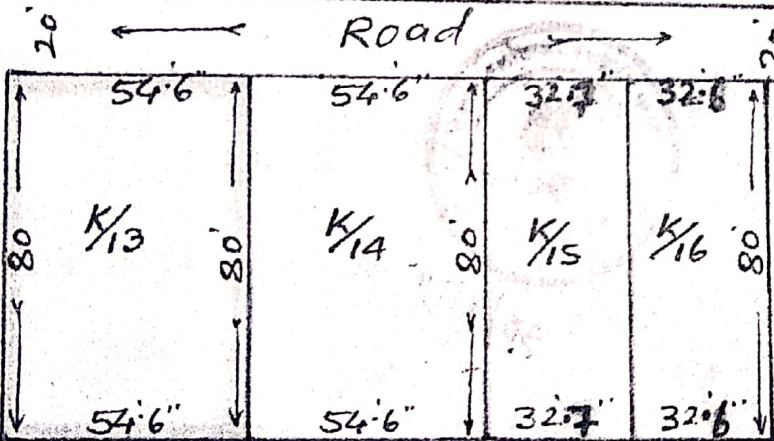 20' Road 20'
54'.6" 54'.6" 32'.7" 32'.6"
80' K/13 80' K/14 80' K/15 K/16 80'
54'.6" 54'.6" 32'.7" 32'.6"